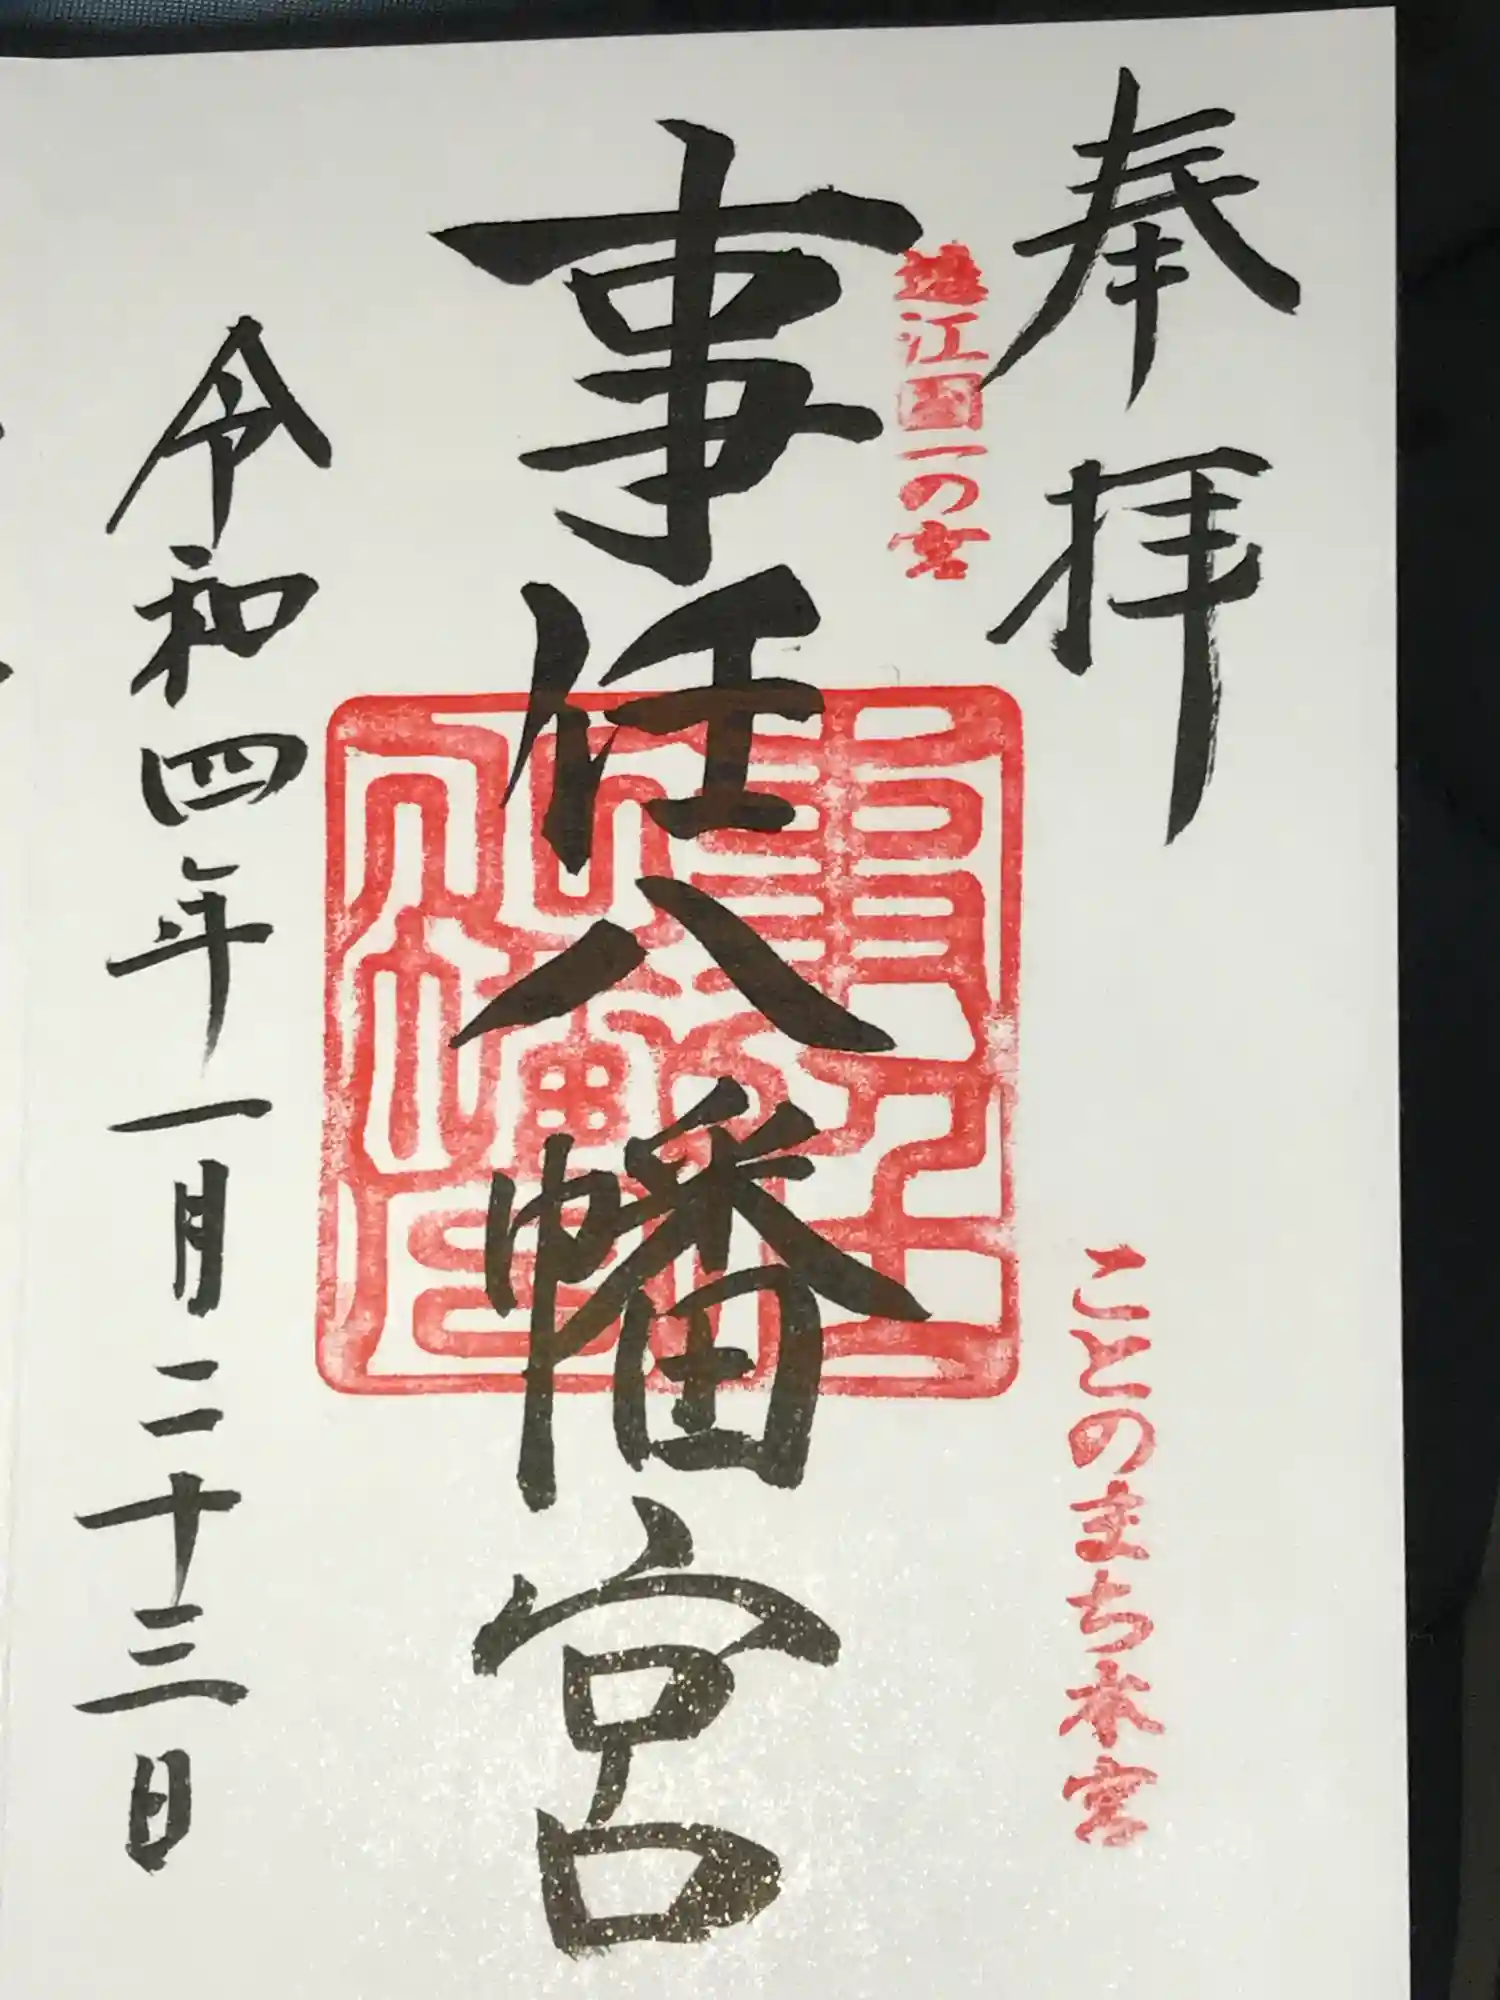 奉拝
遠江国一の宮
ことのまち本宮
事任八幡宮
令和四年一月二十三日